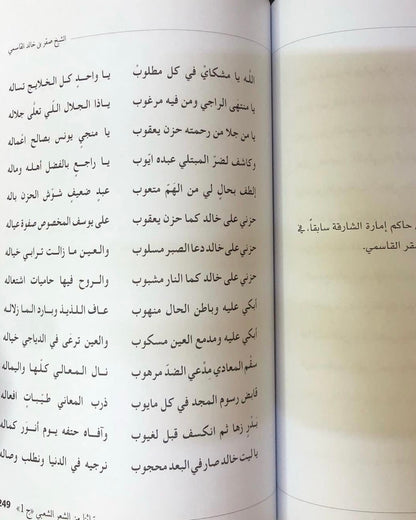 الشيخ صقر بن خالد القاسمي
الله يا مشكاي في كل مطلوبْ يا واحدٍ كل الخلايج تساله
يا منتهى الراجي ومن فيه مرغوب ياذا الجلال اللّي تعلّى جلاله
يا من جلا من رحمته حزن يعقوب يا منجي يونس بصالح اعْماله
وكاشف لضرّ المبتلي عبده ايّوب يا راجعٍ بالفضل أهله وماله
إلطف بحالٍ لي من الهمّ متعوب عبدٍ ضعيفٍ شوّش الحزن باله
حزني على خالد كما حزن يعقوب على يوسف المخصوص صفوة عياله
حزني على خالد دعا الصبر مسلوب والعين ما زالت ترابي خياله
حزني على خالد كما النار مشبوب والروح فيها حاميات اشتعاله
أبكي عليه وباطن الحال منهوب عاف اللذيذ وبارد الما زلاله
أبكي عليه ومدمع العين مسكوب والعين ترعى في الدياجي خياله
سقْم المعادي مِدْعي الضدّ مرهوب نال المعالي كلّها واليماله
قابض رسوم المجد في كل مايوب ذرب المعاني طيّبات افعاله
بَدْرٍ زها ثم انكسف قبل لغيوب وآفاه حتفه يوم أنوَر كماله
يا ليت خالد صار في البعد محجوب نرجيه في الدنيا ونطلب وصاله
من الشعر الشعبي «ج 1» 249
حاكم إمارة الشارقة سابقاً، في
القاسمي.